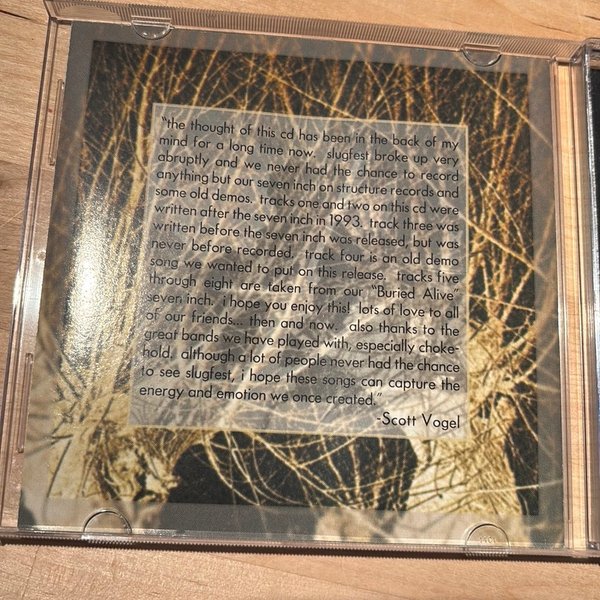 "the thought of this cd has been in the back of my
mind for a long time now. slugfest broke up very
abruptly and we never had the chance to record
anything but our seven inch on structure records and
some old demos. tracks one and two on this cd were
written after the seven inch in 1993. track three was
written before the seven inch was released, but was
never before recorded. track four is an old demo
song we wanted to put on this release. tracks five
through eight are taken from our "Buried Alive"
seven inch. i hope you enjoy this! lots of love to all
of our friends... then and now. also thanks to the
great bands we have played with, especially choke-
hold, although a lot of people never had the chance
to see slugfest, i hope these songs can capture the
energy and emotion we once created."
-Scott Vogel